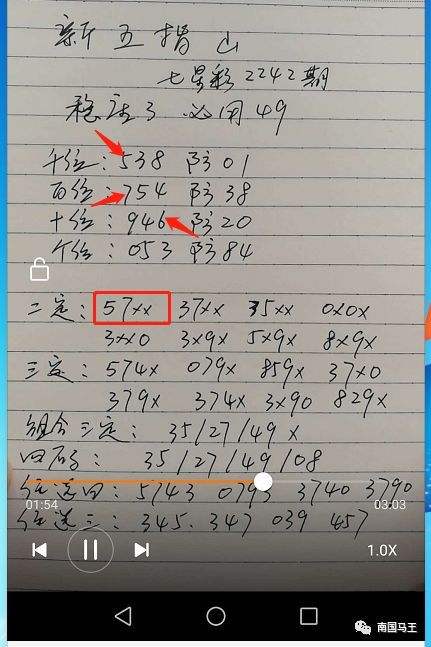 新五指山
七星彩2242期
稳注3 必用49
千位:538 防01
百位:754 防38
十位:946 防20
个位:053 防84
二定:57xx 37xx 35xx 0x0x
3xx0 3x9x 5x9x 8x9x
三定:574x 079x 859x 37x0
379x 374x 3x90 829x
组合三定:35/27/49x
四码:35/27/49/08
任选四:5743 0793 3740 3790
01:54 03:03
任选三:345.347 039 457
1.0X
南国马王